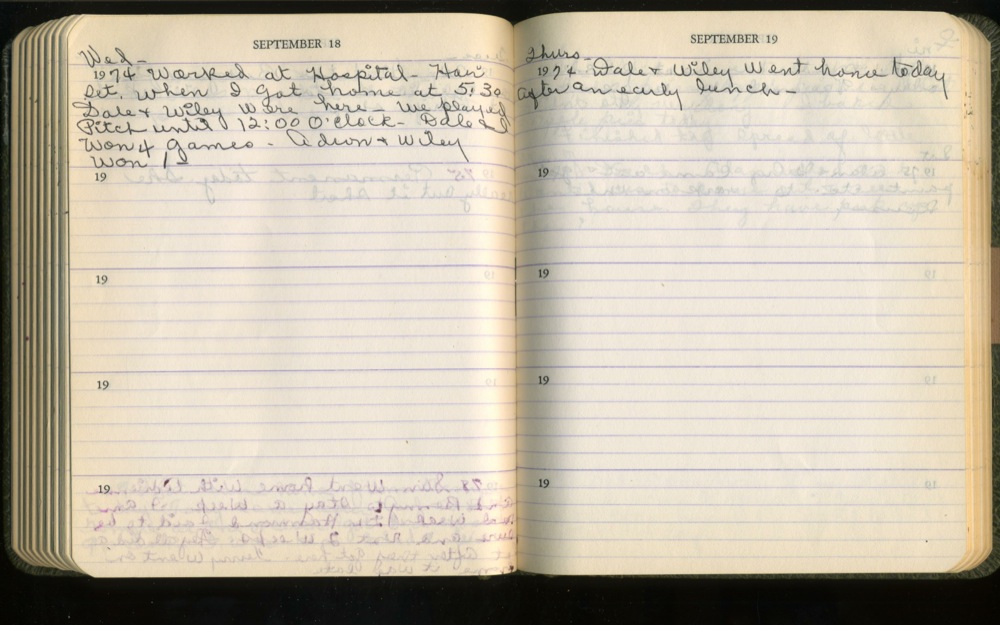 SEPTEMBER 18
Wed-
1974 Worked at Hospital- Hair
Set. When I got home at 5:30
Dale + Wiley were here - we played
Pitch until 12:00 O'clock- Dale + I
Won 4 games - Adron + Wiley
Won 1-
19
19
19
19
SEPTEMBER 19
Thurs-
1974 Dale + Wiley Went home today
after an early lunch-
19
19
19
19